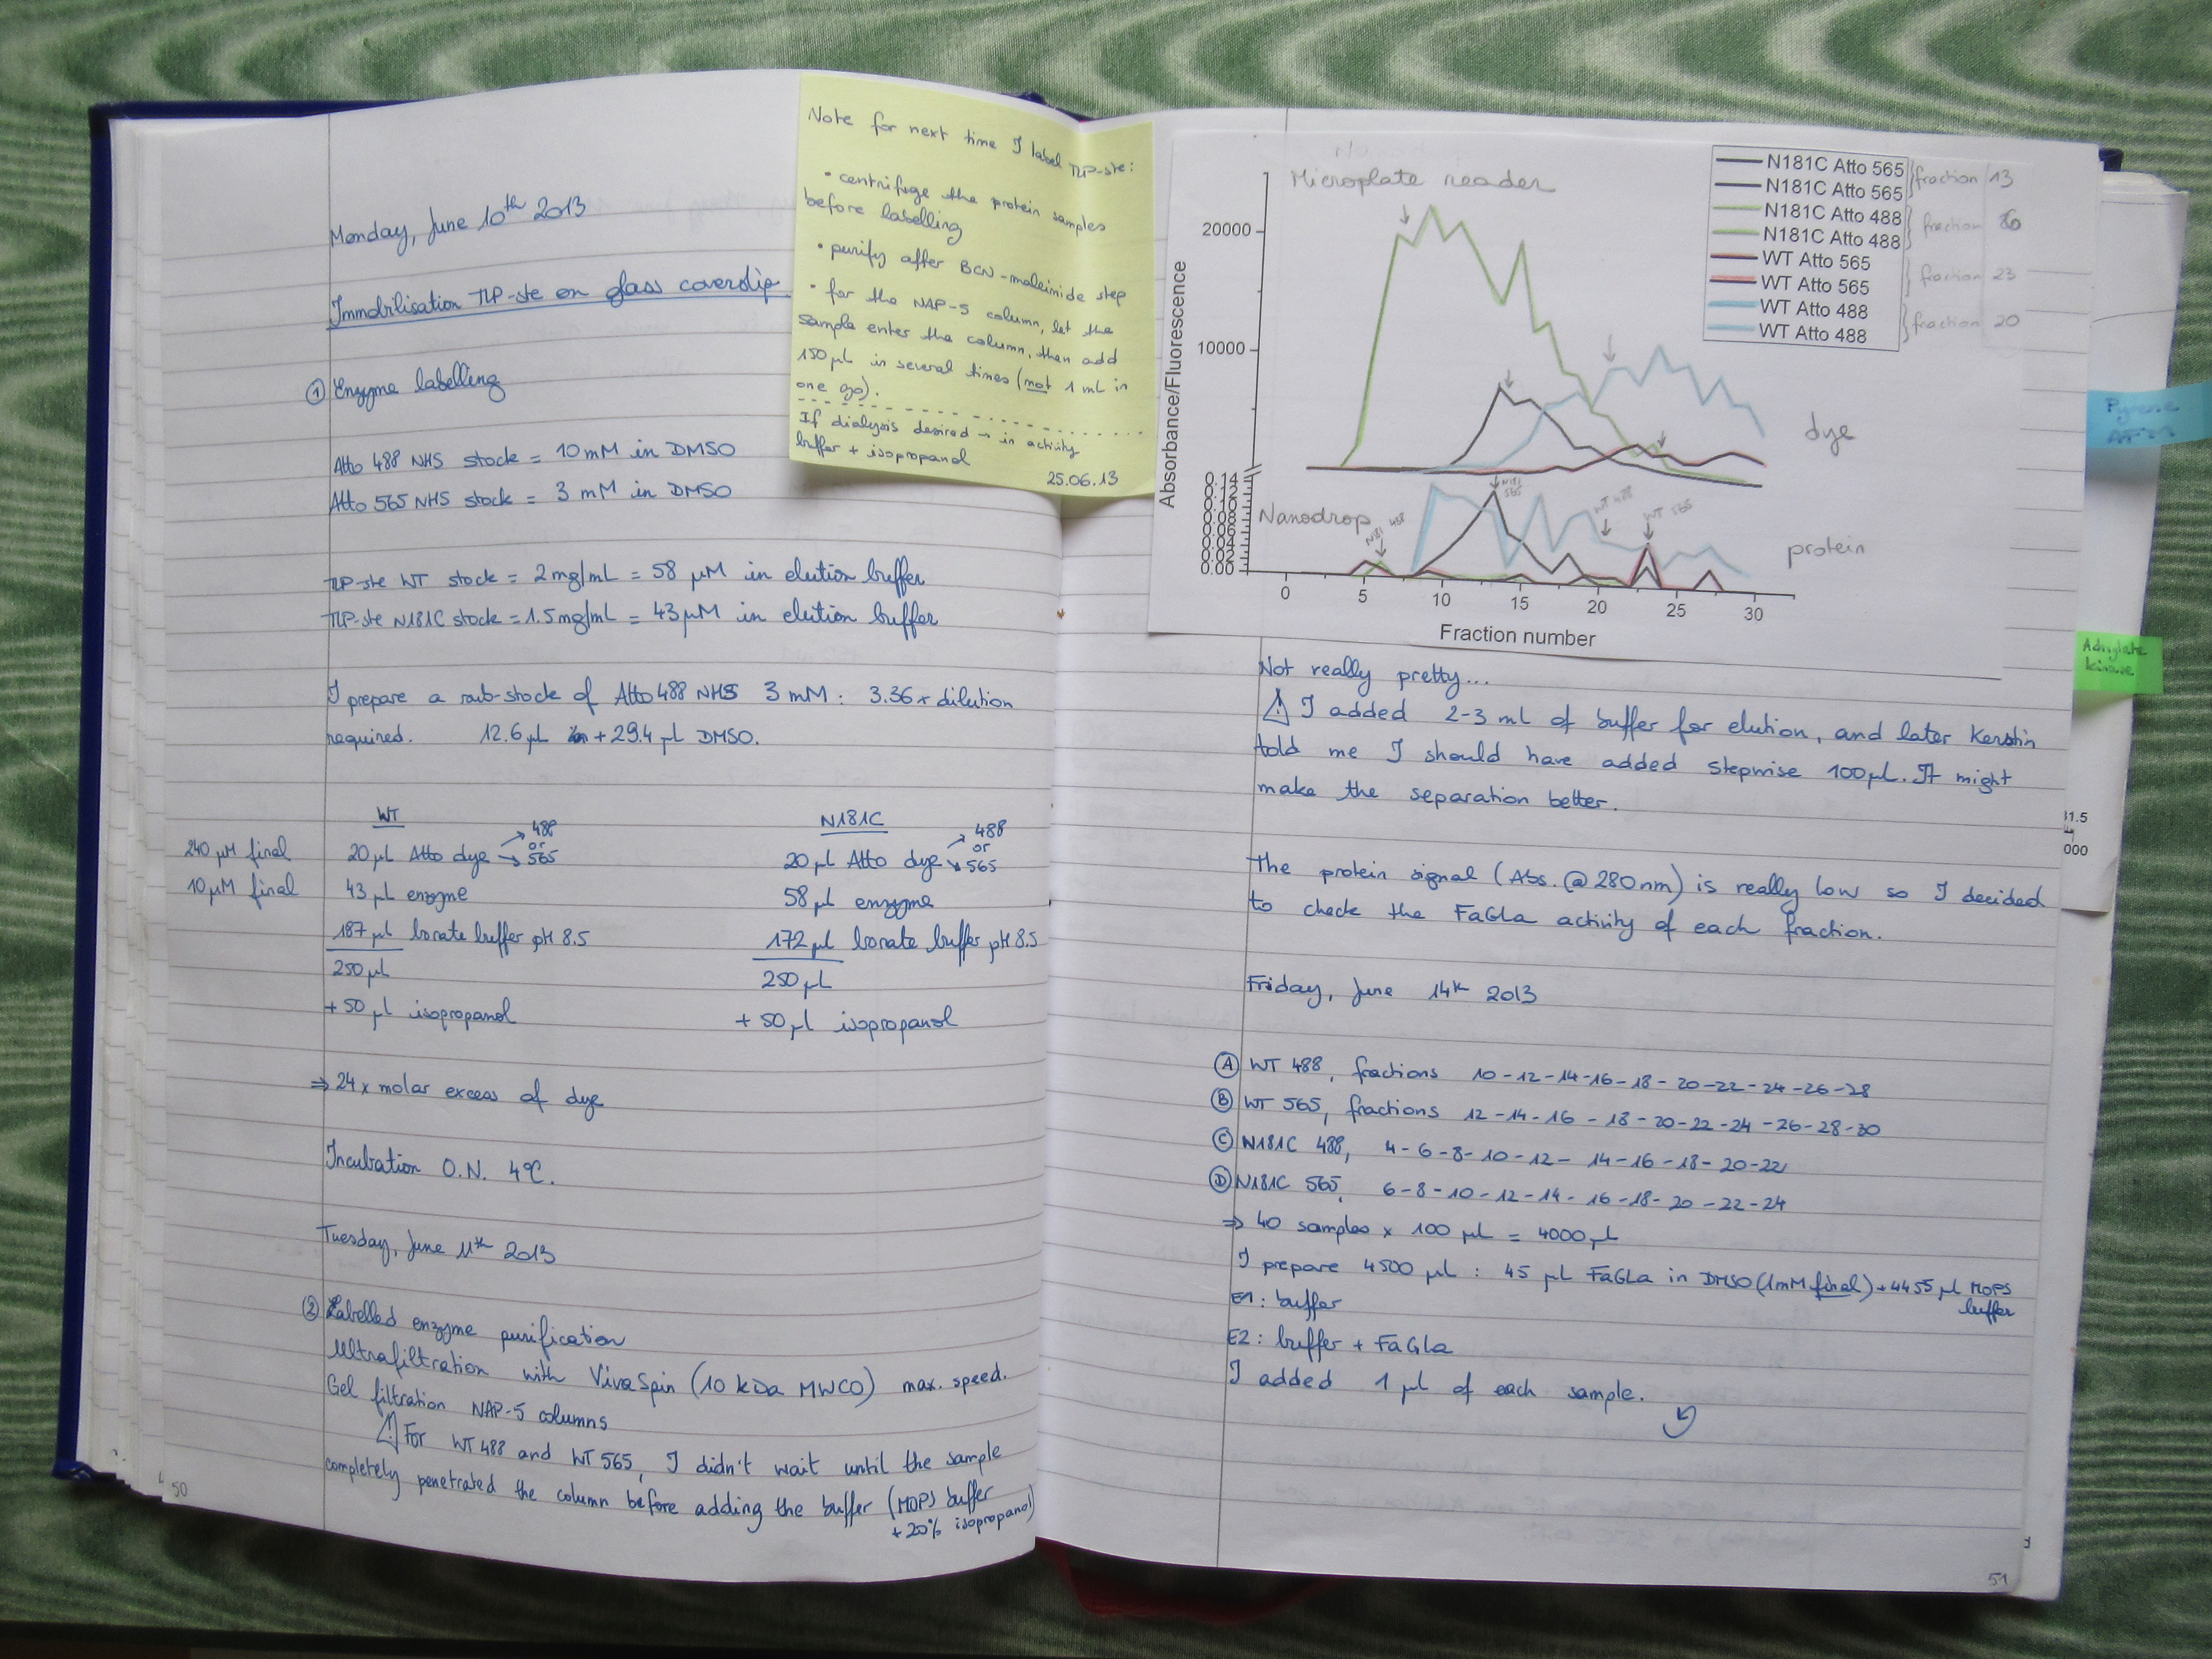 Monday, June 10th 2013
Immobilisation TLP-ste on glass coverslip
① Enzyme labelling
Atto 488 NHS stock = 10 mM in DMSO
Atto 565 NHS stock = 3 mM in DMSO
TLP-ste WT stock = 2 mg/mL = 58 µM in elution buffer
TLP-ste N181C stock = 1.5 mg/mL = 43 µM in elution buffer
I prepare a sub-stock of Atto 488 NHS 3 mM : 3.36 x dilution
required. 12.6 µL + 29.4 µL DMSO.
WT
240 µM final 20 µL Atto dye → 488 or 565
10 µM final 43 µL enzyme
187 µL borate buffer pH 8.5
250 µL
+ 50 µL isopropanol
N181C
20 µL Atto dye → 488 or 565
58 µL enzyme
172 µL borate buffer pH 8.5
250 µL
+ 50 µL isopropanol
⇒ 24 x molar excess of dye
Incubation O.N. 4°C.
Tuesday, June 11th 2013
② Labelled enzyme purification
Ultrafiltration with VivaSpin (10 kDa MWCO) max. speed.
Gel filtration NAP-5 columns
⚠ For WT 488 and WT 565, I didn't wait until the sample
completely penetrated the column before adding the buffer (MOPS buffer
+ 20% isopropanol)
50
Note for next time I label TLP-ste:
• centrifuge the protein samples
before labelling
• purify after BCN-maleimide step
• for the NAP-5 column, let the
sample enter the column, then add
150 µL in several times (not 1 mL in
one go).
If dialysis desired → in activity
buffer + isopropanol
25.06.13
Microplate reader
N181C Atto 565
N181C Atto 565
fraction 13
N181C Atto 488
N181C Atto 488
fraction
WT Atto 565
WT Atto 565
fraction 23
WT Atto 488
WT Atto 488
fraction 20
Absorbance/Fluorescence
20000
10000
dye
0.14
0.12
0.10
0.08
0.06
0.04
0.02
0.00
Nanodrop
N181 488
N181 565
WT 488
WT 565
protein
0 5 10 15 20 25 30
Fraction number
Not really pretty...
⚠ I added 2-3 mL of buffer for elution, and later Kerstin
told me I should have added stepwise 100 µL. It might
make the separation better.
The protein signal (Abs. @ 280 nm) is really low so I decided
to check the FaGLa activity of each fraction.
Friday, June 14th 2013
Ⓐ WT 488, fractions 10 - 12 - 14 - 16 - 18 - 20 - 22 - 24 - 26 - 28
Ⓑ WT 565, fractions 12 - 14 - 16 - 18 - 20 - 22 - 24 - 26 - 28 - 30
Ⓒ N181C 488, 4 - 6 - 8 - 10 - 12 - 14 - 16 - 18 - 20 - 22
Ⓓ N181C 565, 6 - 8 - 10 - 12 - 14 - 16 - 18 - 20 - 22 - 24
⇒ 40 samples x 100 µL = 4000 µL
I prepare 4500 µL : 45 µL FaGLa in DMSO (1mM final) + 4455 µL MOPS
buffer
E1 : buffer
E2 : buffer + FaGLa
I added 1 µL of each sample.
51
Pyrene
AFM
Adenylate
kinase
31.5
000